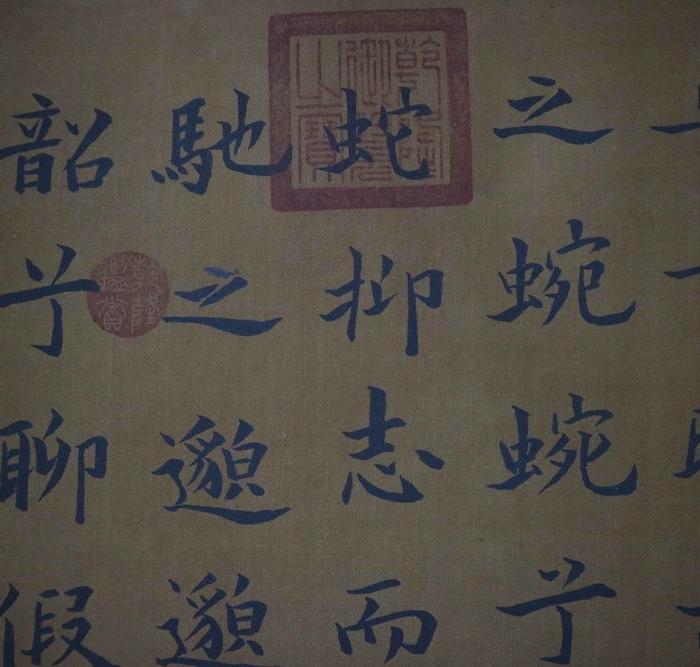 之蜿蜿兮
蛇抑志而
馳之邈邈
韶兮聊假
乾隆御覽之寶
乾隆鑑賞